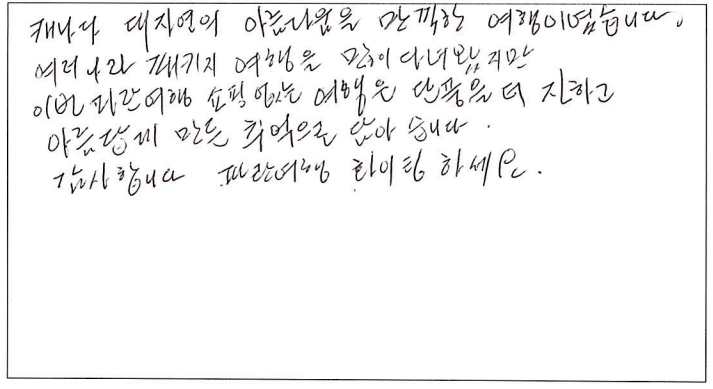 캐나다 대자연의 아름다움을 만끽한 여행이였습니다.
여러나라 패키지 여행을 많이 다녀왔지만
이번 파란여행 쇼핑 없는 여행은 단풍을 더 진하고
아름답게 만든 추억으로 남아 습니다.
감사합니다 파란여행 화이팅 하세요.